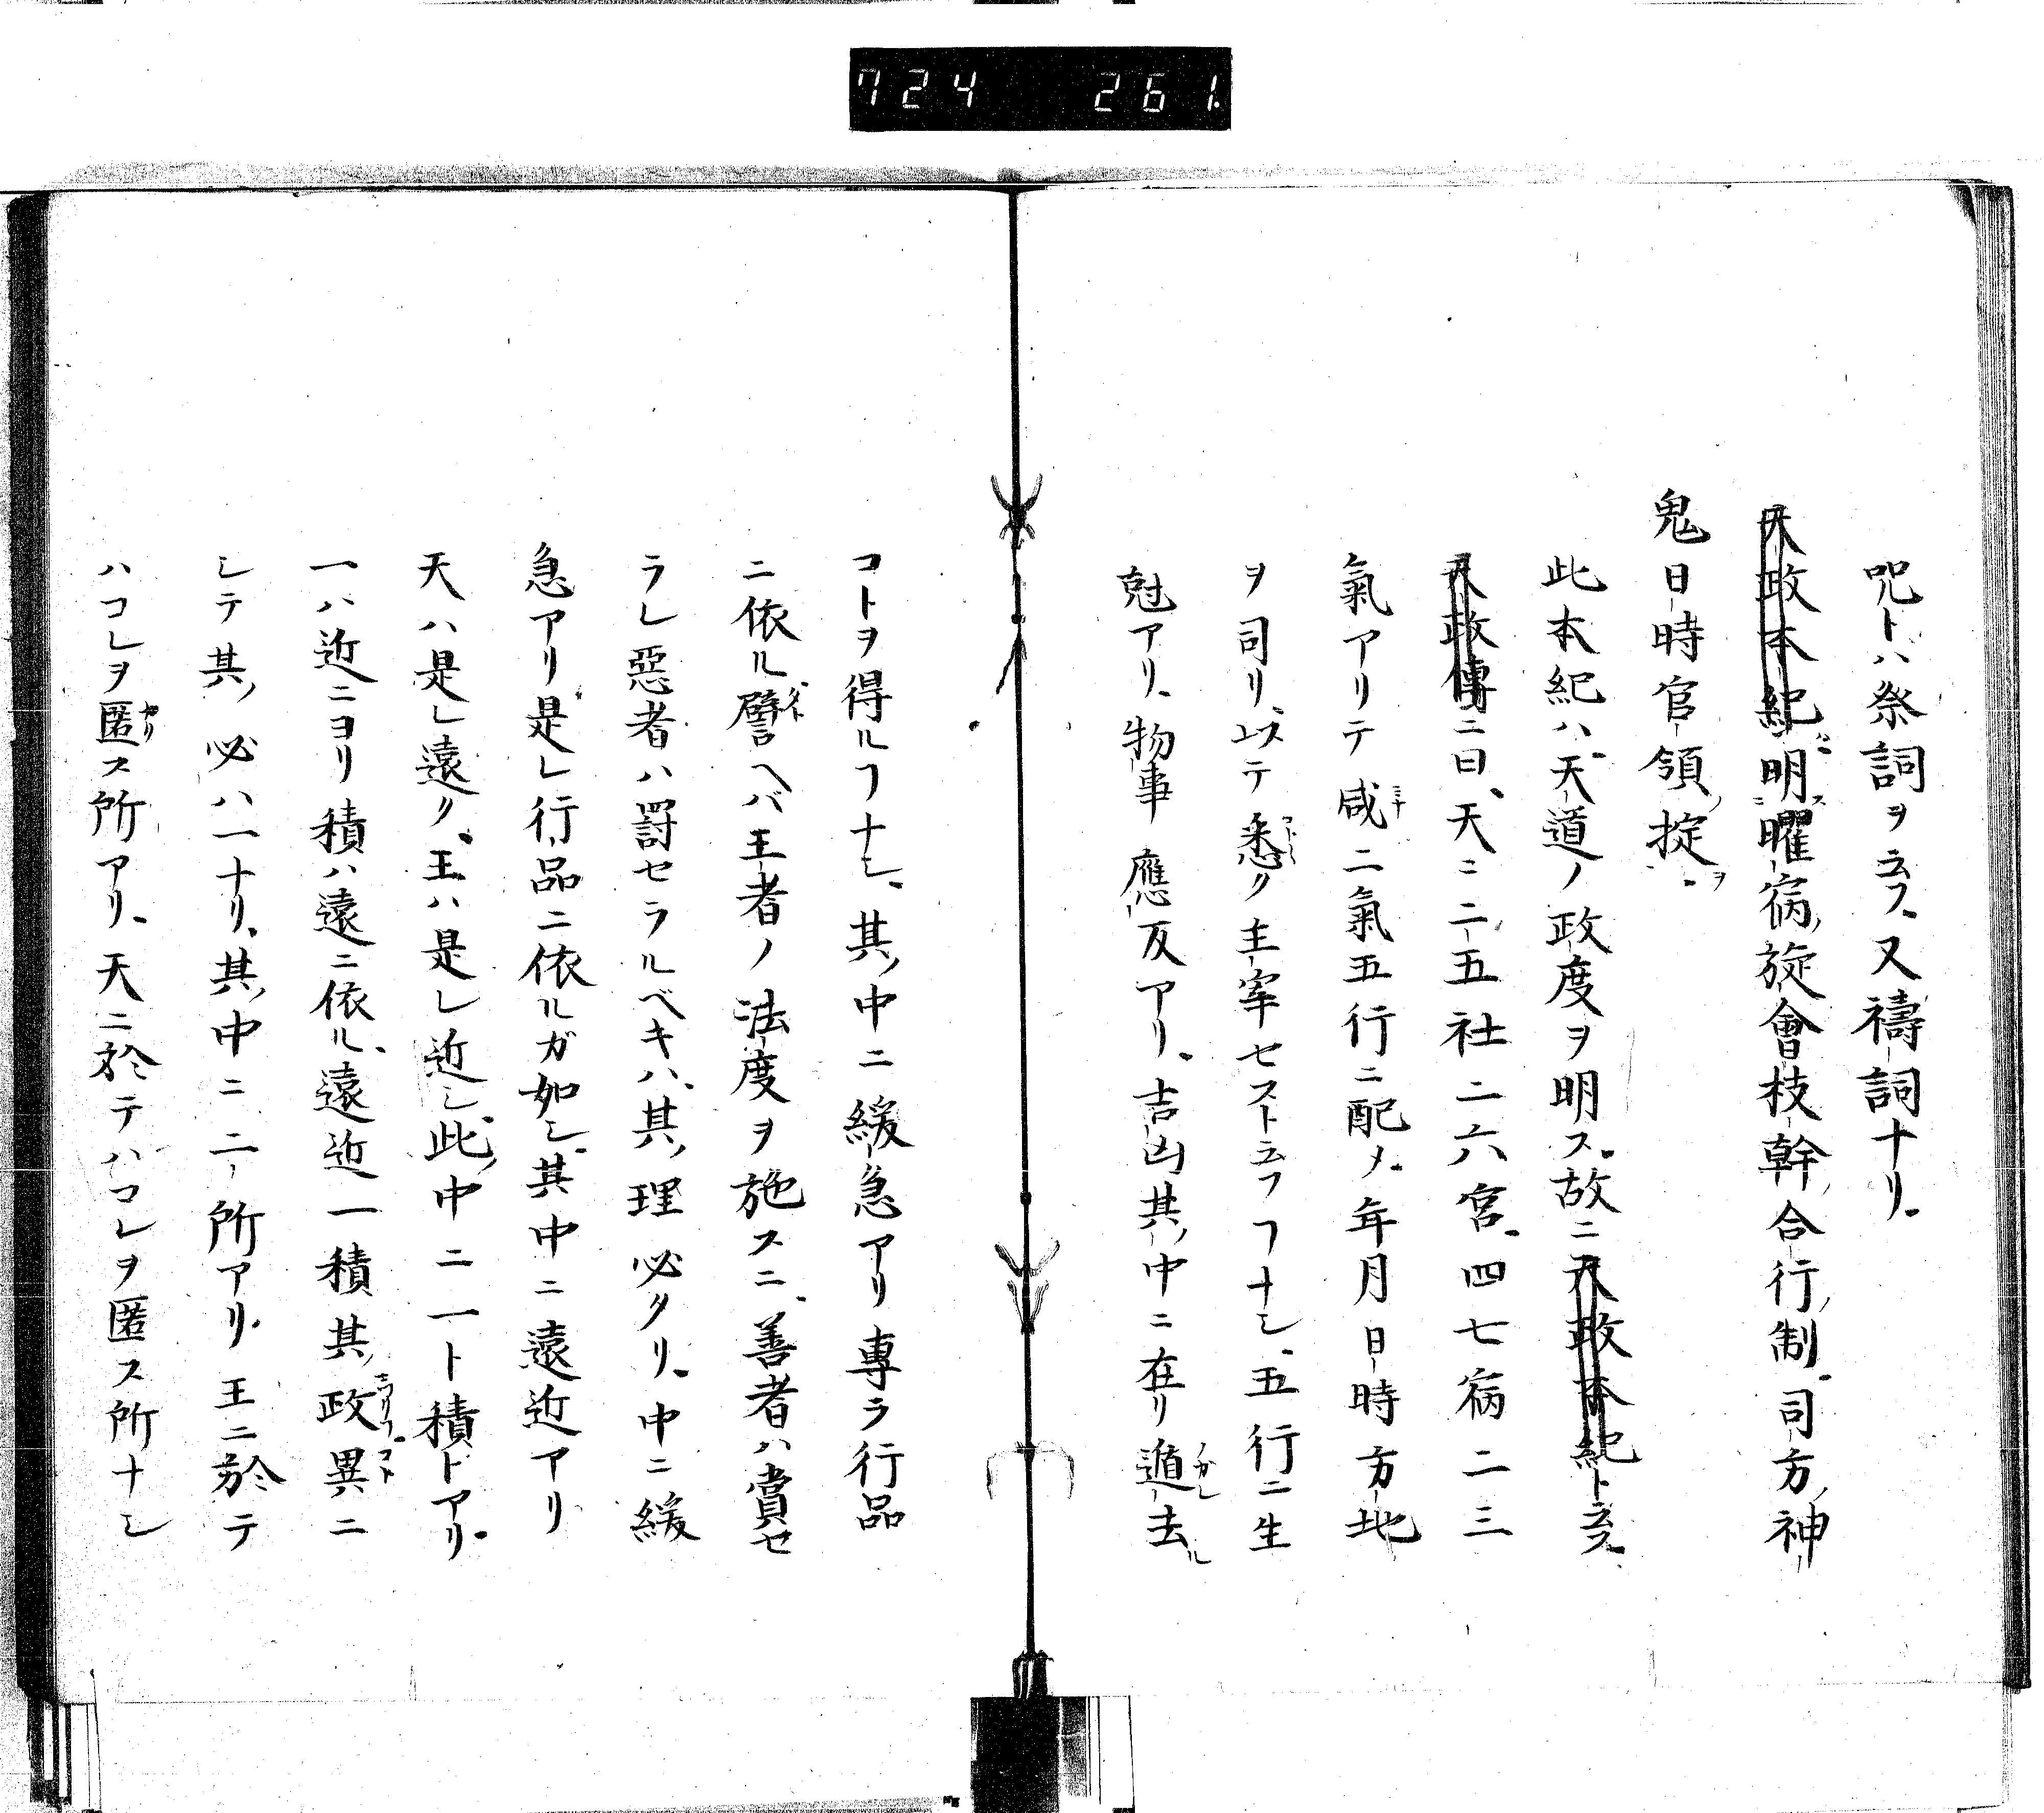 724 261.
咒トハ祭詞ヲ云フ。又禱詞ナリ。
天政本紀ニ明ス曜宿旋會枝幹合行制。司方神
鬼日時官領掟。ヲ
此本紀ハ。天道ノ政度ヲ明ス。故ニ天政本紀ト云フ。
天政傳ニ曰、天ニ二五社二六宮。四七宿二三
氣アリテ咸ミナ二氣五行ニ配メ。年月日時方地
ヲ司リ、以テ悉ク主宰セスト云フヿナシ、五行ニ生
尅アリ、物事應反アリ。吉凶其ノ中ニ在リ遁去ル
コトヲ得ルヿナシ、其ノ中ニ緩急アリ専ラ行品
ニ依ル譬ヘバ王者ノ法度ヲ施スニ、善者ハ賞セ
ラレ惡者ハ罸セラルベキハ、其ノ理必タリ、中ニ緩
急アリ是レ行品ニ依ルガ如シ、其中ニ遠近アリ
天ハ是レ遠ク、王ハ是レ近シ、此ノ中ニ一ト積トアリ。
一ハ近ニヨリ積ハ遠ニ依ル、遠近一積其ノ政異ニ
シテ其ノ必ハ一ナリ、其ノ中ニ二ノ所アリ、王ニ於テ
ハコレヲ匿ス所アリ、天ニ於テハコレヲ匿ス所ナシ